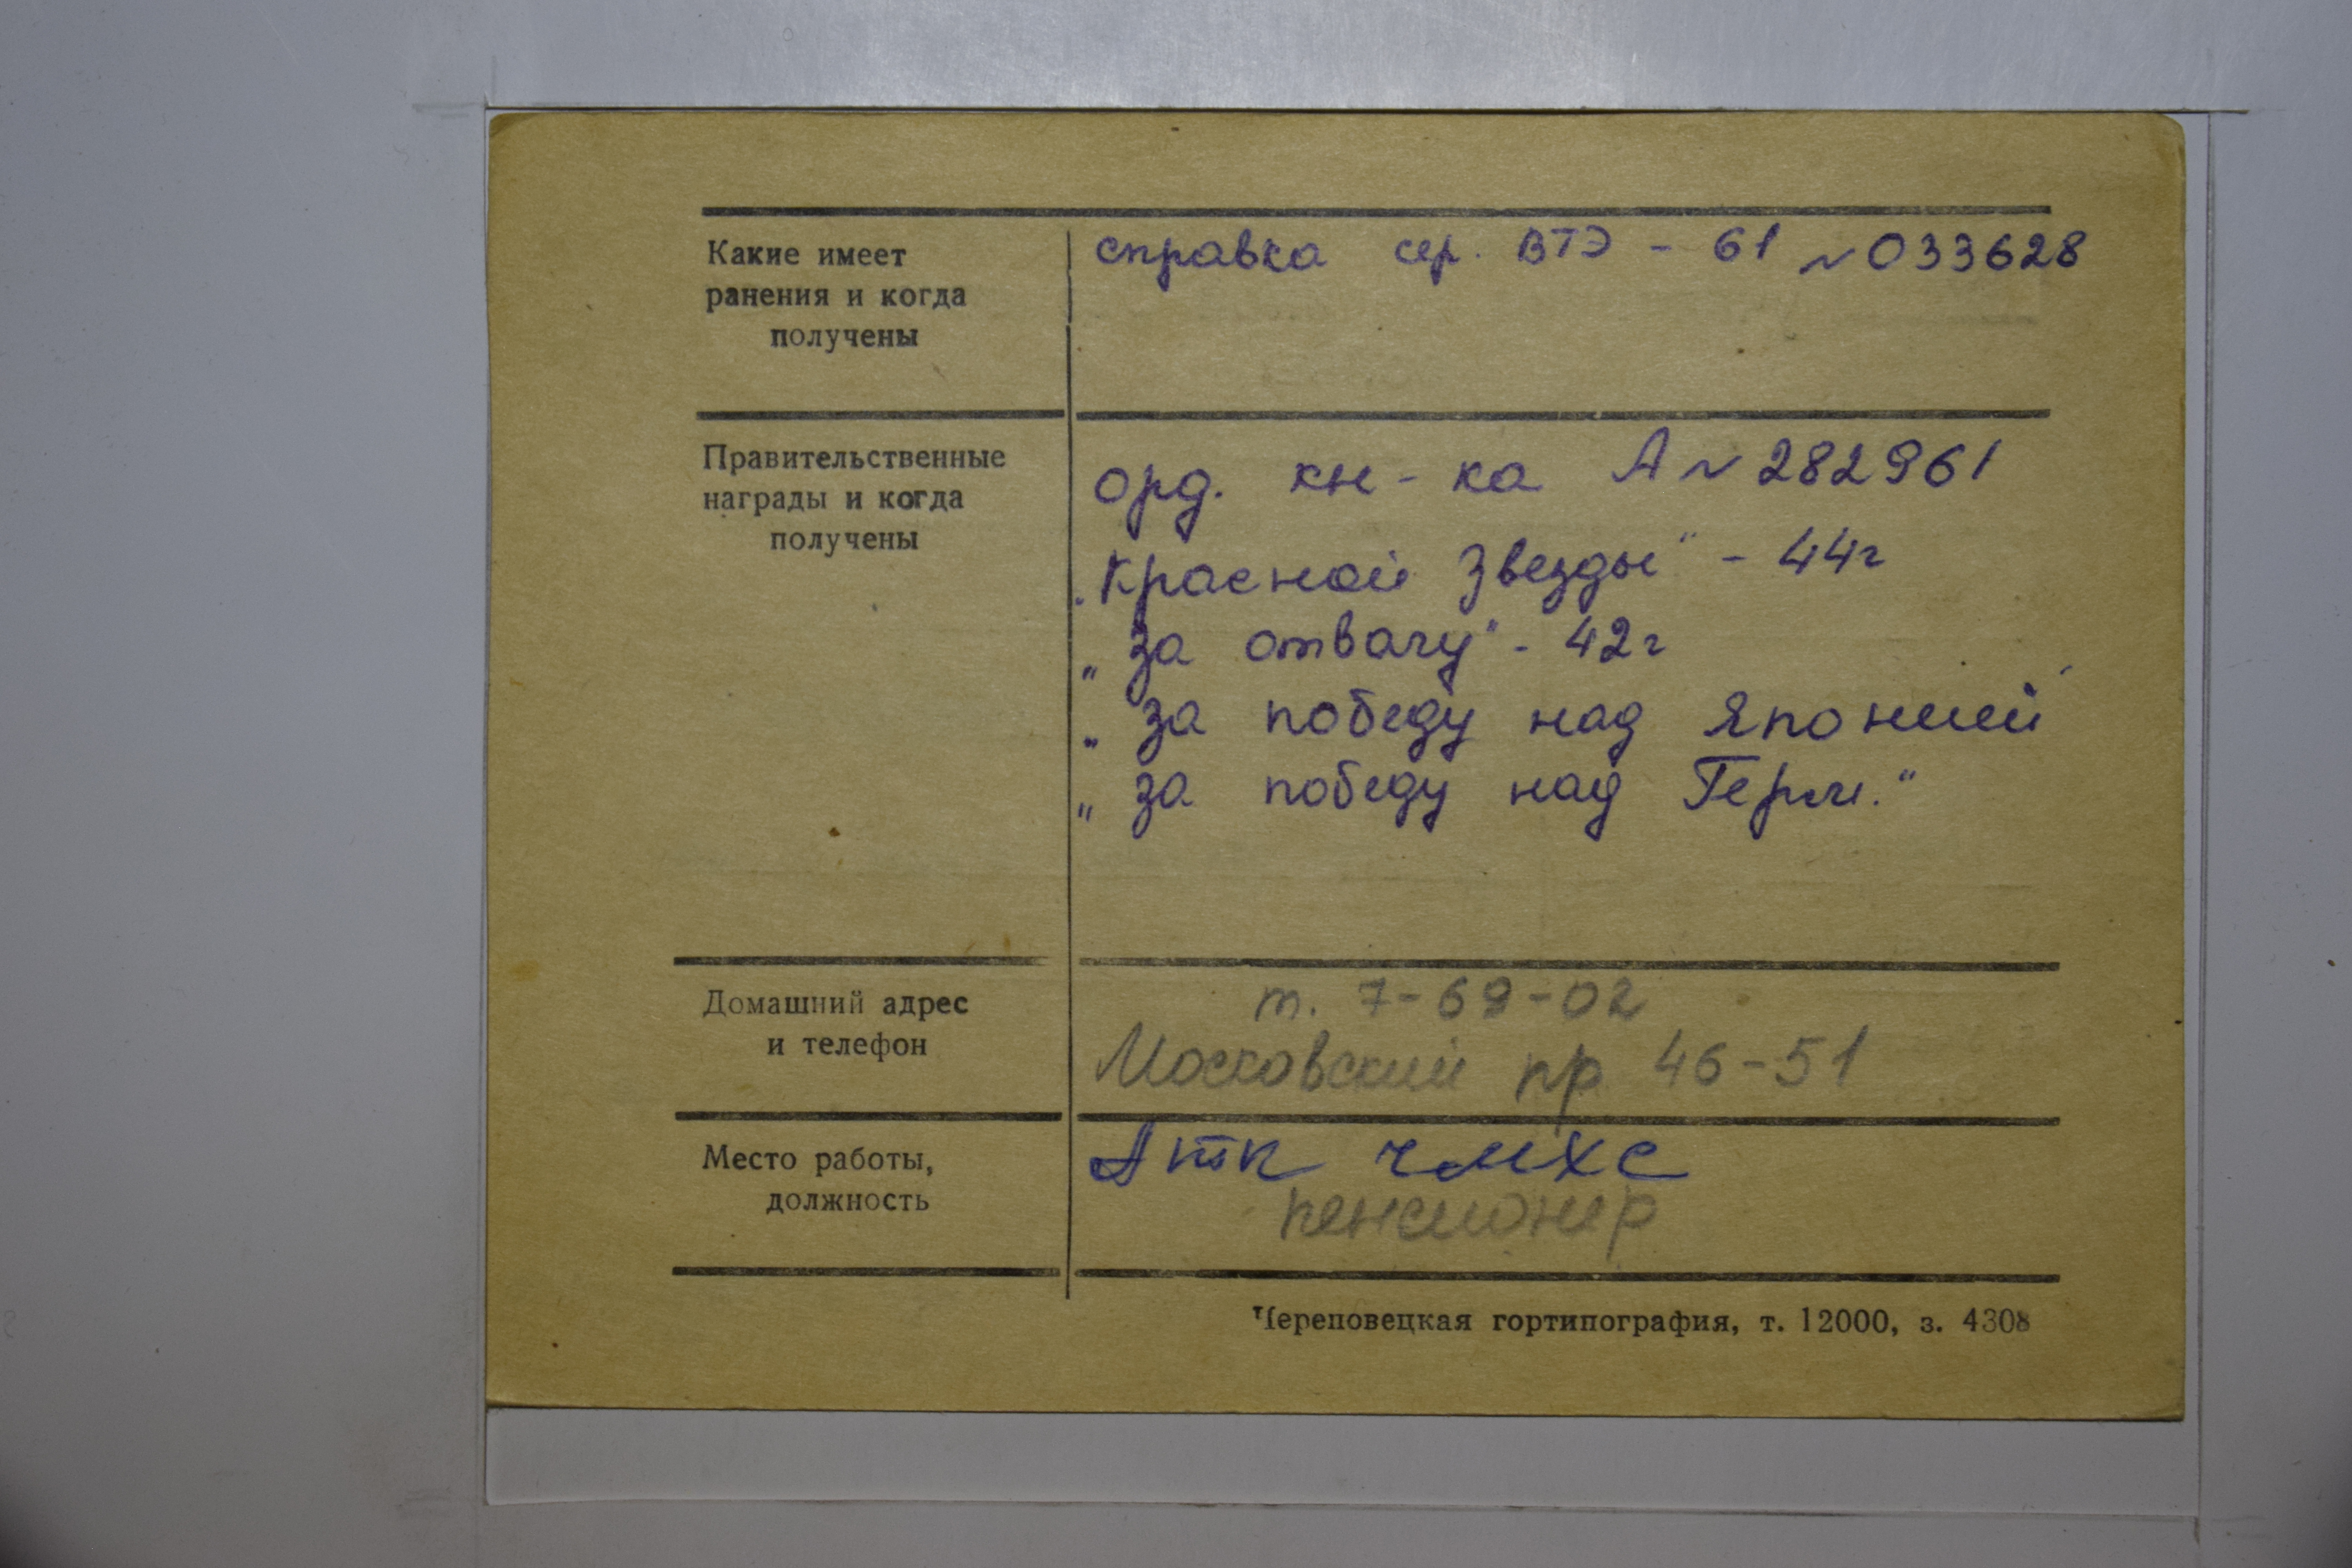 Какие имеет
ранения и когда
получены
справка сер. ВТЭ - 61 №033628
Правительственные
награды и когда
получены
орд. кн-ка А № 282961
„Красной Звезды" - 44г
„За отвагу" - 42г
„За победу над Японией"
„За победу над Герм."
Домашний адрес
и телефон
т. 7-69-02
Московский пр 46-51
Место работы,
должность
АТК ЧМХС
пенсионер
Череповецкая гортипография, т. 12000, з. 4308